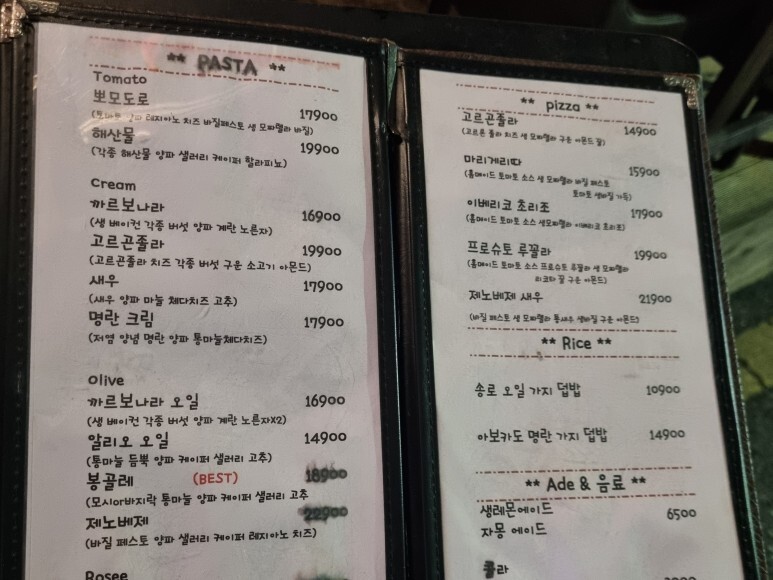 ** PASTA **
Tomato
뽀모도로 17900
(토마토 양파 레지아노 치즈 바질페스토 생 모짜렐라 바질)
해산물 19900
(각종 해산물 양파 샐러리 케이퍼 할라피뇨)
Cream
까르보나라 16900
(생 베이컨 각종 버섯 양파 계란 노른자)
고르곤졸라 19900
(고르곤졸라 치즈 각종 버섯 구운 소고기 아몬드)
새우 17900
(새우 양파 마늘 체다치즈 고추)
명란 크림 17900
(저염 양념 명란 양파 통마늘체다치즈)
Olive
까르보나라 오일 16900
(생 베이컨 각종 버섯 양파 계란 노른자X2)
알리오 오일 14900
(통마늘 듬뿍 양파 케이퍼 샐러리 고추)
봉골레 (BEST) 18900
(모시or바지락 통마늘 양파 케이퍼 샐러리 고추
제노베제 22900
(바질 페스토 양파 샐러리 케이퍼 레지아노 치즈)
Rosee
** pizza **
고르곤졸라 14900
(고르곤 졸라 치즈 생 모짜렐라 구운 아몬드 꿀)
마리게리따 15900
(홈메이드 토마토 소스 생 모짜렐라 바질 페스토
토마토 생바질 가득)
이베리코 초리조 17900
(홈메이드 토마토 소스 생모짜렐라 이베리코 초리조)
프로슈토 루꼴라 19900
(홈메이드 토마토 소스 프로슈토 루꼴라 생 모짜렐라
리코타 꿀 구운 아몬드)
제노베제 새우 21900
(바질 페스토 생 모짜렐라 통새우 생바질 구운 아몬드)
** Rice **
송로 오일 가지 덮밥 10900
아보카도 명란 가지 덮밥 14900
** Ade & 음료 **
생레몬에이드 6500
자몽 에이드
콜라